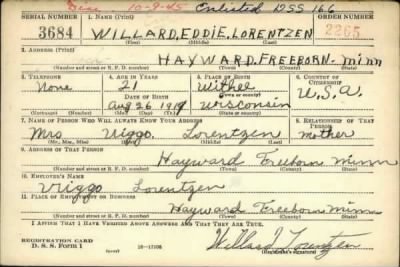 Disc 10-9-45 Enlisted DSS 166
SERIAL NUMBER 1. NAME (Print) ORDER NUMBER
3684 WILLARD, EDDIE, LORENTZEN 2265
(First) (Middle) (Last)
2. ADDRESS (Print)
HAYWARD, FREEBORN. minn
(Number and street or R. F. D. number) (Town) (County) (State)
3. TELEPHONE 4. AGE IN YEARS 5. PLACE OF BIRTH 6. COUNTRY OF CITIZENSHIP
None 21 Withee U.S.A.
DATE OF BIRTH (Town or county)
Aug 26 1919 Wisconsin
(Mo.) (Day) (Yr.) (State or country)
7. NAME OF PERSON WHO WILL ALWAYS KNOW YOUR ADDRESS 8. RELATIONSHIP OF THAT PERSON
Mrs Viggo. Lorentzen mother
(Mr., Mrs., Miss) (First) (Middle) (Last)
9. ADDRESS OF THAT PERSON
Hayward Freeborn Minn
(Number and street or R. F. D. number) (Town) (County) (State)
10. EMPLOYER'S NAME
Viggo Lorentzen
11. PLACE OF EMPLOYMENT OR BUSINESS
Hayward Freeborn Minn
(Number and street or R. F. D. number) (Town) (County) (State)
I AFFIRM THAT I HAVE VERIFIED ABOVE ANSWERS AND THAT THEY ARE TRUE.
REGISTRATION CARD
D. S. S. FORM 1 16-17105 Willard Lorentzen
(Registrant's signature)